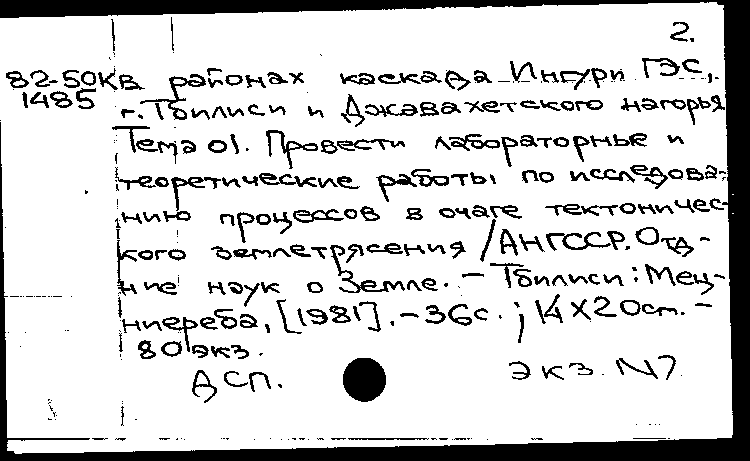 2.
82-50к в районах каскада Ингури ГЭС,
1485 г. Тбилиси и Джавахетского нагорья
Тема 01. Провести лабораторные и
теоретические работы по исследова-
нию процессов в очаге тектоничес-
кого землетрясения / АН ГССР. Отд-
ние наук о Земле. - Тбилиси: Мец-
ниереба, [1981]. - 36с.; 14X20см. -
80 экз.
ДСП. экз. N7